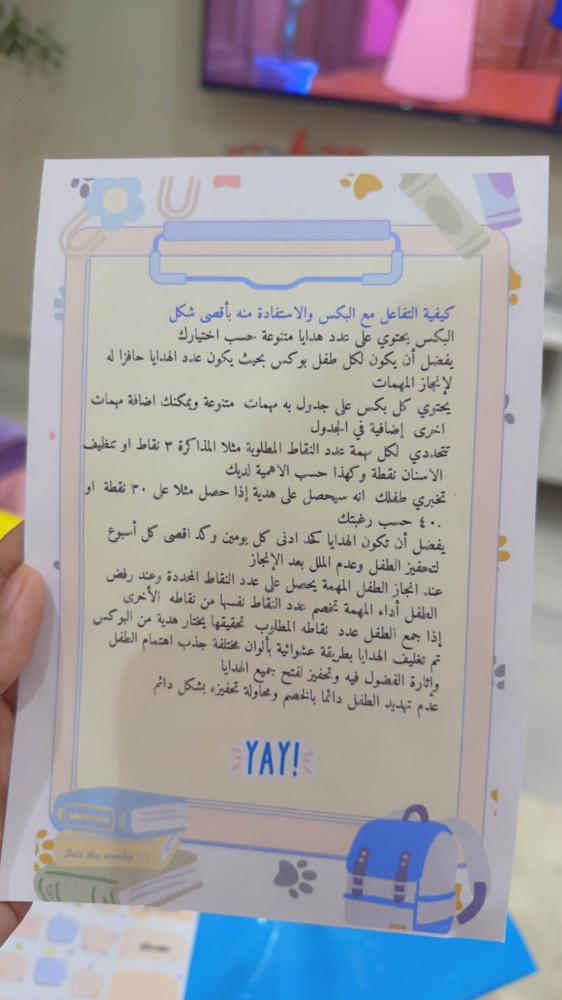 كيفية التفاعل مع البكس والاستفادة منه بأقصى شكل
البكس يحتوي على عدد هدايا متنوعة حسب اختيارك
يفضل أن يكون لكل طفل بوكس بحيث يكون عدد الهدايا حافزا له
لإنجاز المهمات
يحتوي كل بكس على جدول به مهمات متنوعة ويمكنك اضافة مهمات
اخرى إضافية في الجدول
تتحددي لكل مهمة عدد النقاط المطلوبة مثلا المذاكرة ٣ نقاط او تنظيف
الاسنان نقطة وكهذا حسب الاهمية لديك
تخبري طفلك انه سيحصل على هدية إذا حصل مثلا على ٣٠ نقطة او
٤٠ حسب رغبتك
يفضل أن تكون الهدايا كحد ادنى كل يومين وكد اقصى كل أسبوع
لتحفيز الطفل وعدم الملل بعد الإنجاز
عند انجاز الطفل المهمة يحصل على عدد النقاط المحددة وعند رفض
الطفل أداء المهمة تخصم عدد النقاط نفسها من نقاطه الأخرى
إذا جمع الطفل عدد نقاطه المطلوب تحقيقها يختار هدية من البوكس
تم تغليف الهدايا بطريقة عشوائية بألوان مختلفة جذب اهتمام الطفل
وإثارة الفضول فيه وتحفيز لفتح جميع الهدايا
عدم تهديد الطفل دائما بالخصم ومحاولة تحفيزه بشكل دائم
YAY!